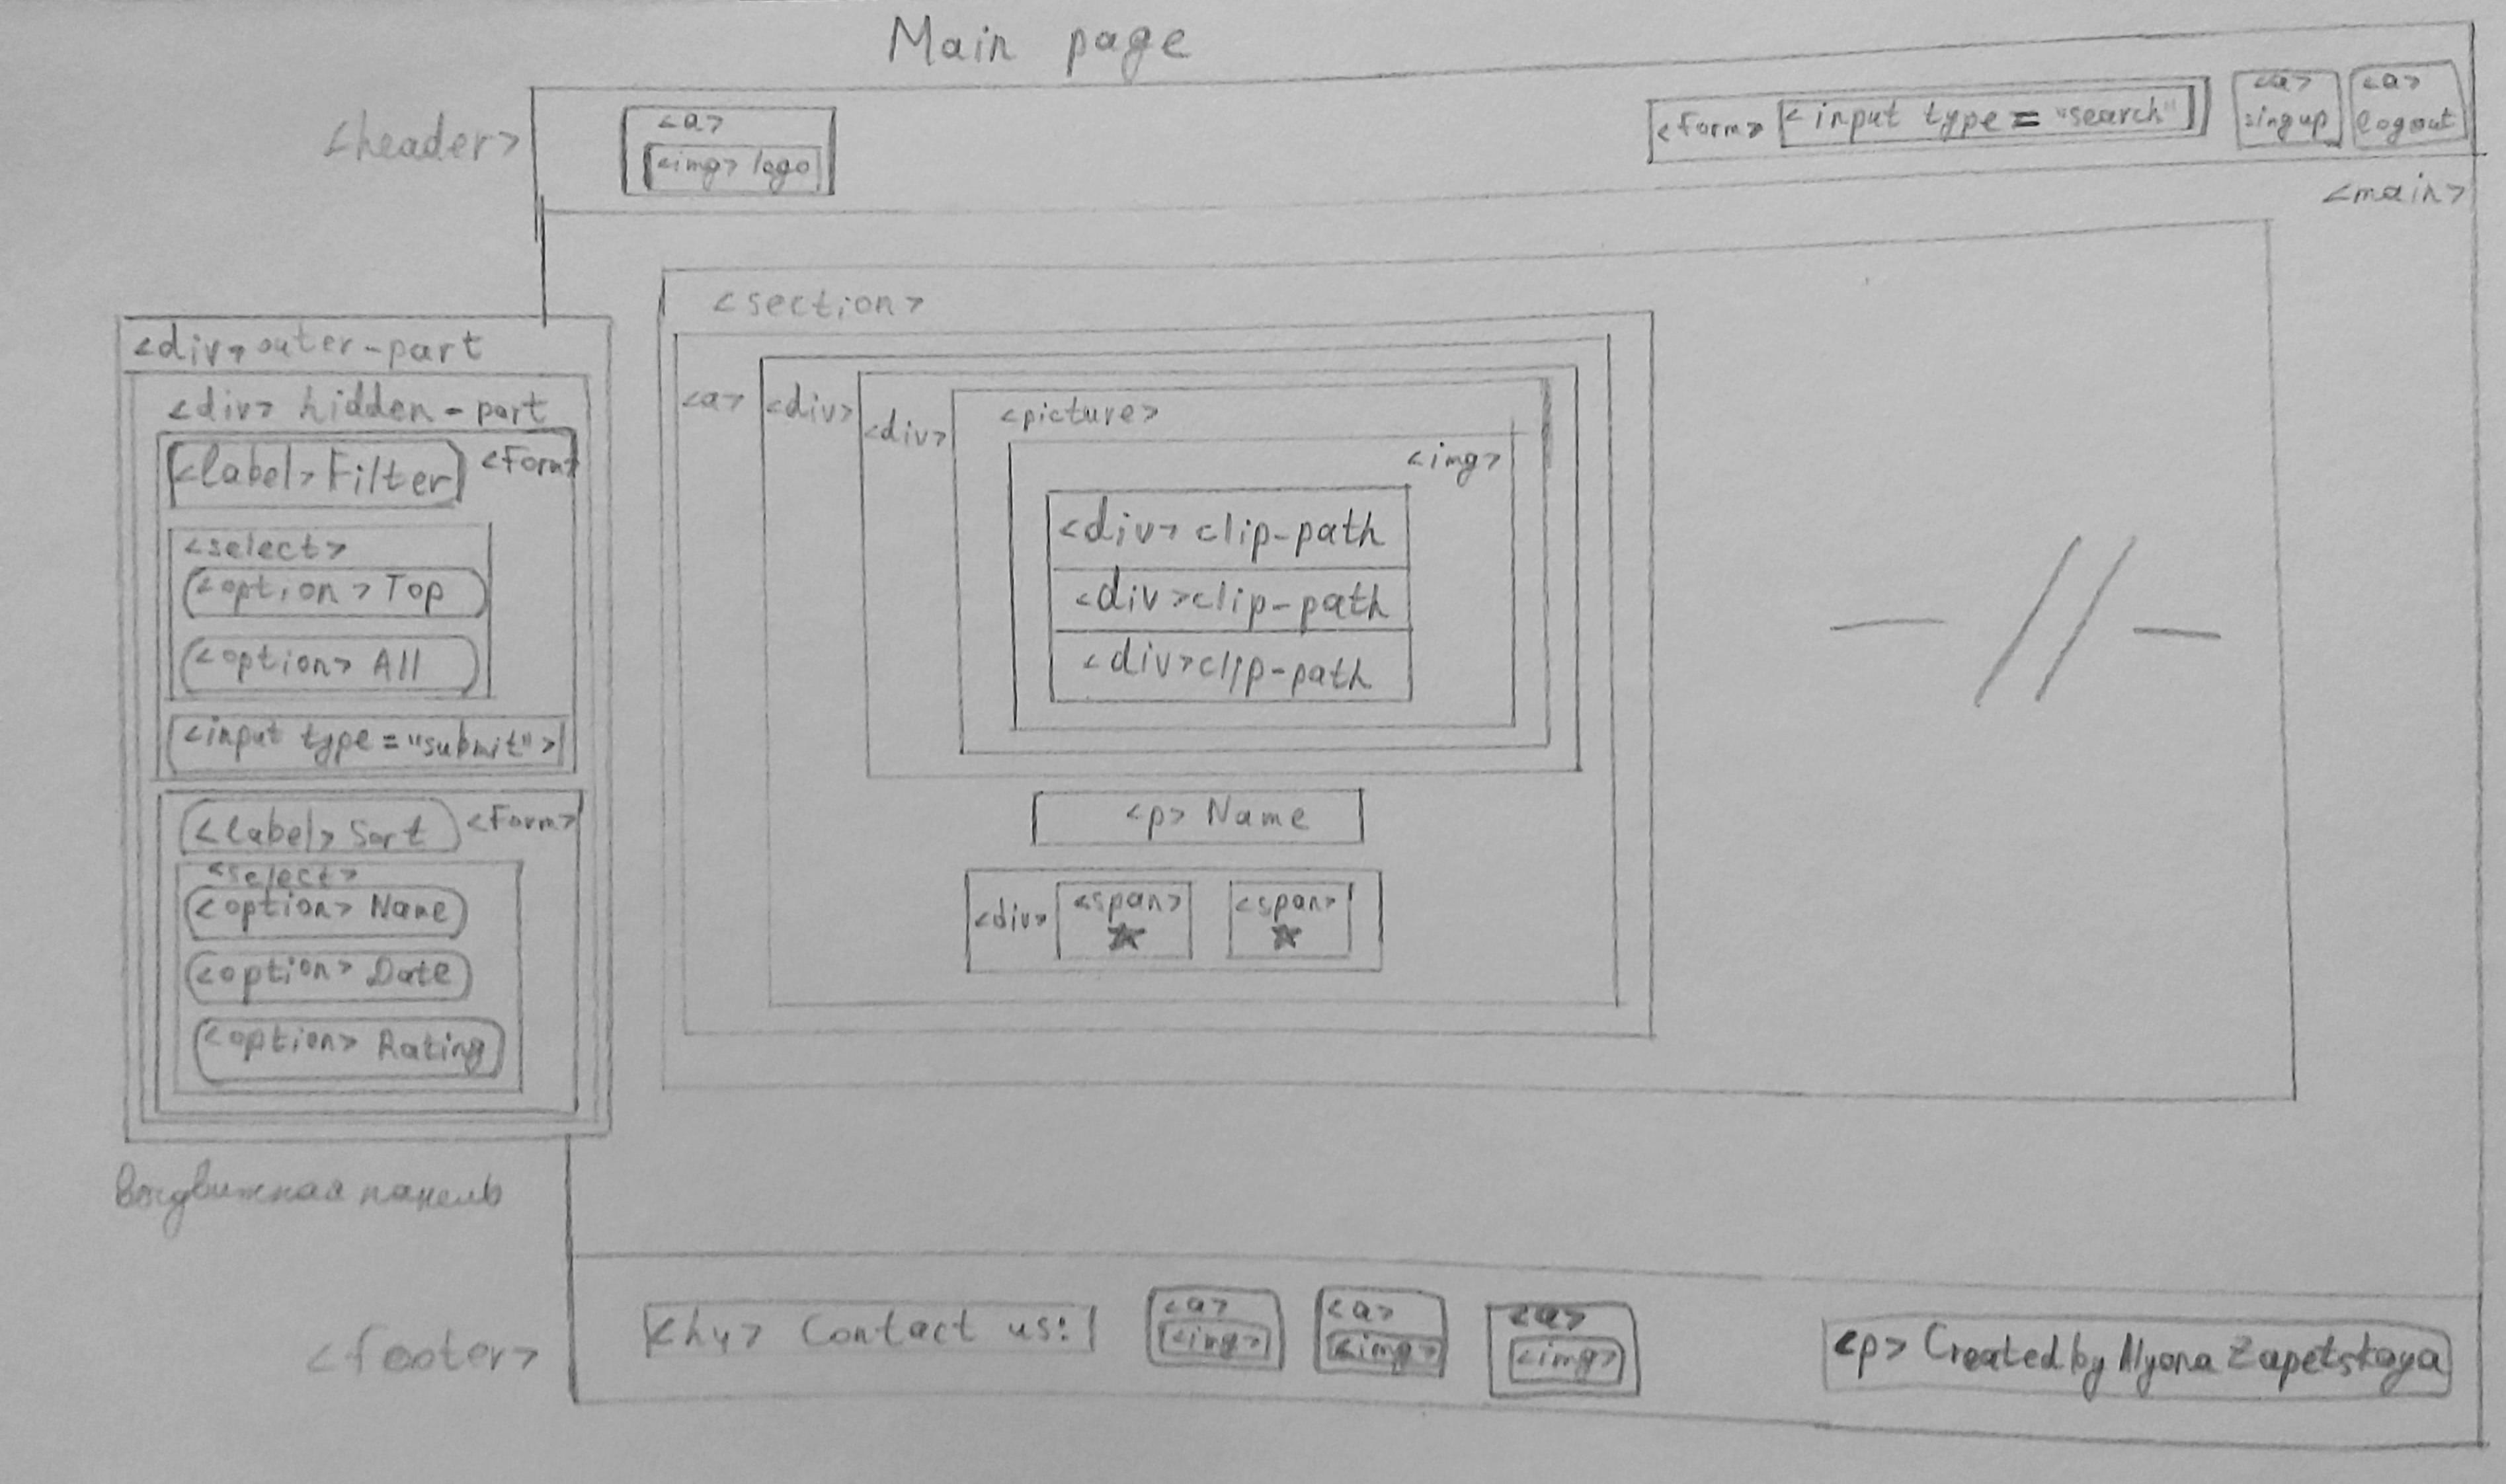 Main page
<header>
<a>
<img> logo
<form> <input type = "search"
<a>
singup
<a>
logout
<main>
<div> outer-part
<div> hidden-part
<label> Filter
<form>
<select>
<option> Top
<option> All
<input type = "submit">
<label> Sort
<form>
<select>
<option> Name
<option> Date
<option> Rating
Выдвижная панель
<section>
<a>
<div>
<div>
<picture>
<img>
<div> clip-path
<div> clip-path
<div> clip-path
<p> Name
<div>
<span>
<span>
— // —
<footer>
<h4> Contact us:
<a>
<img>
<a>
<img>
<a>
<img>
<p> Created by Alyona Zapetskaya